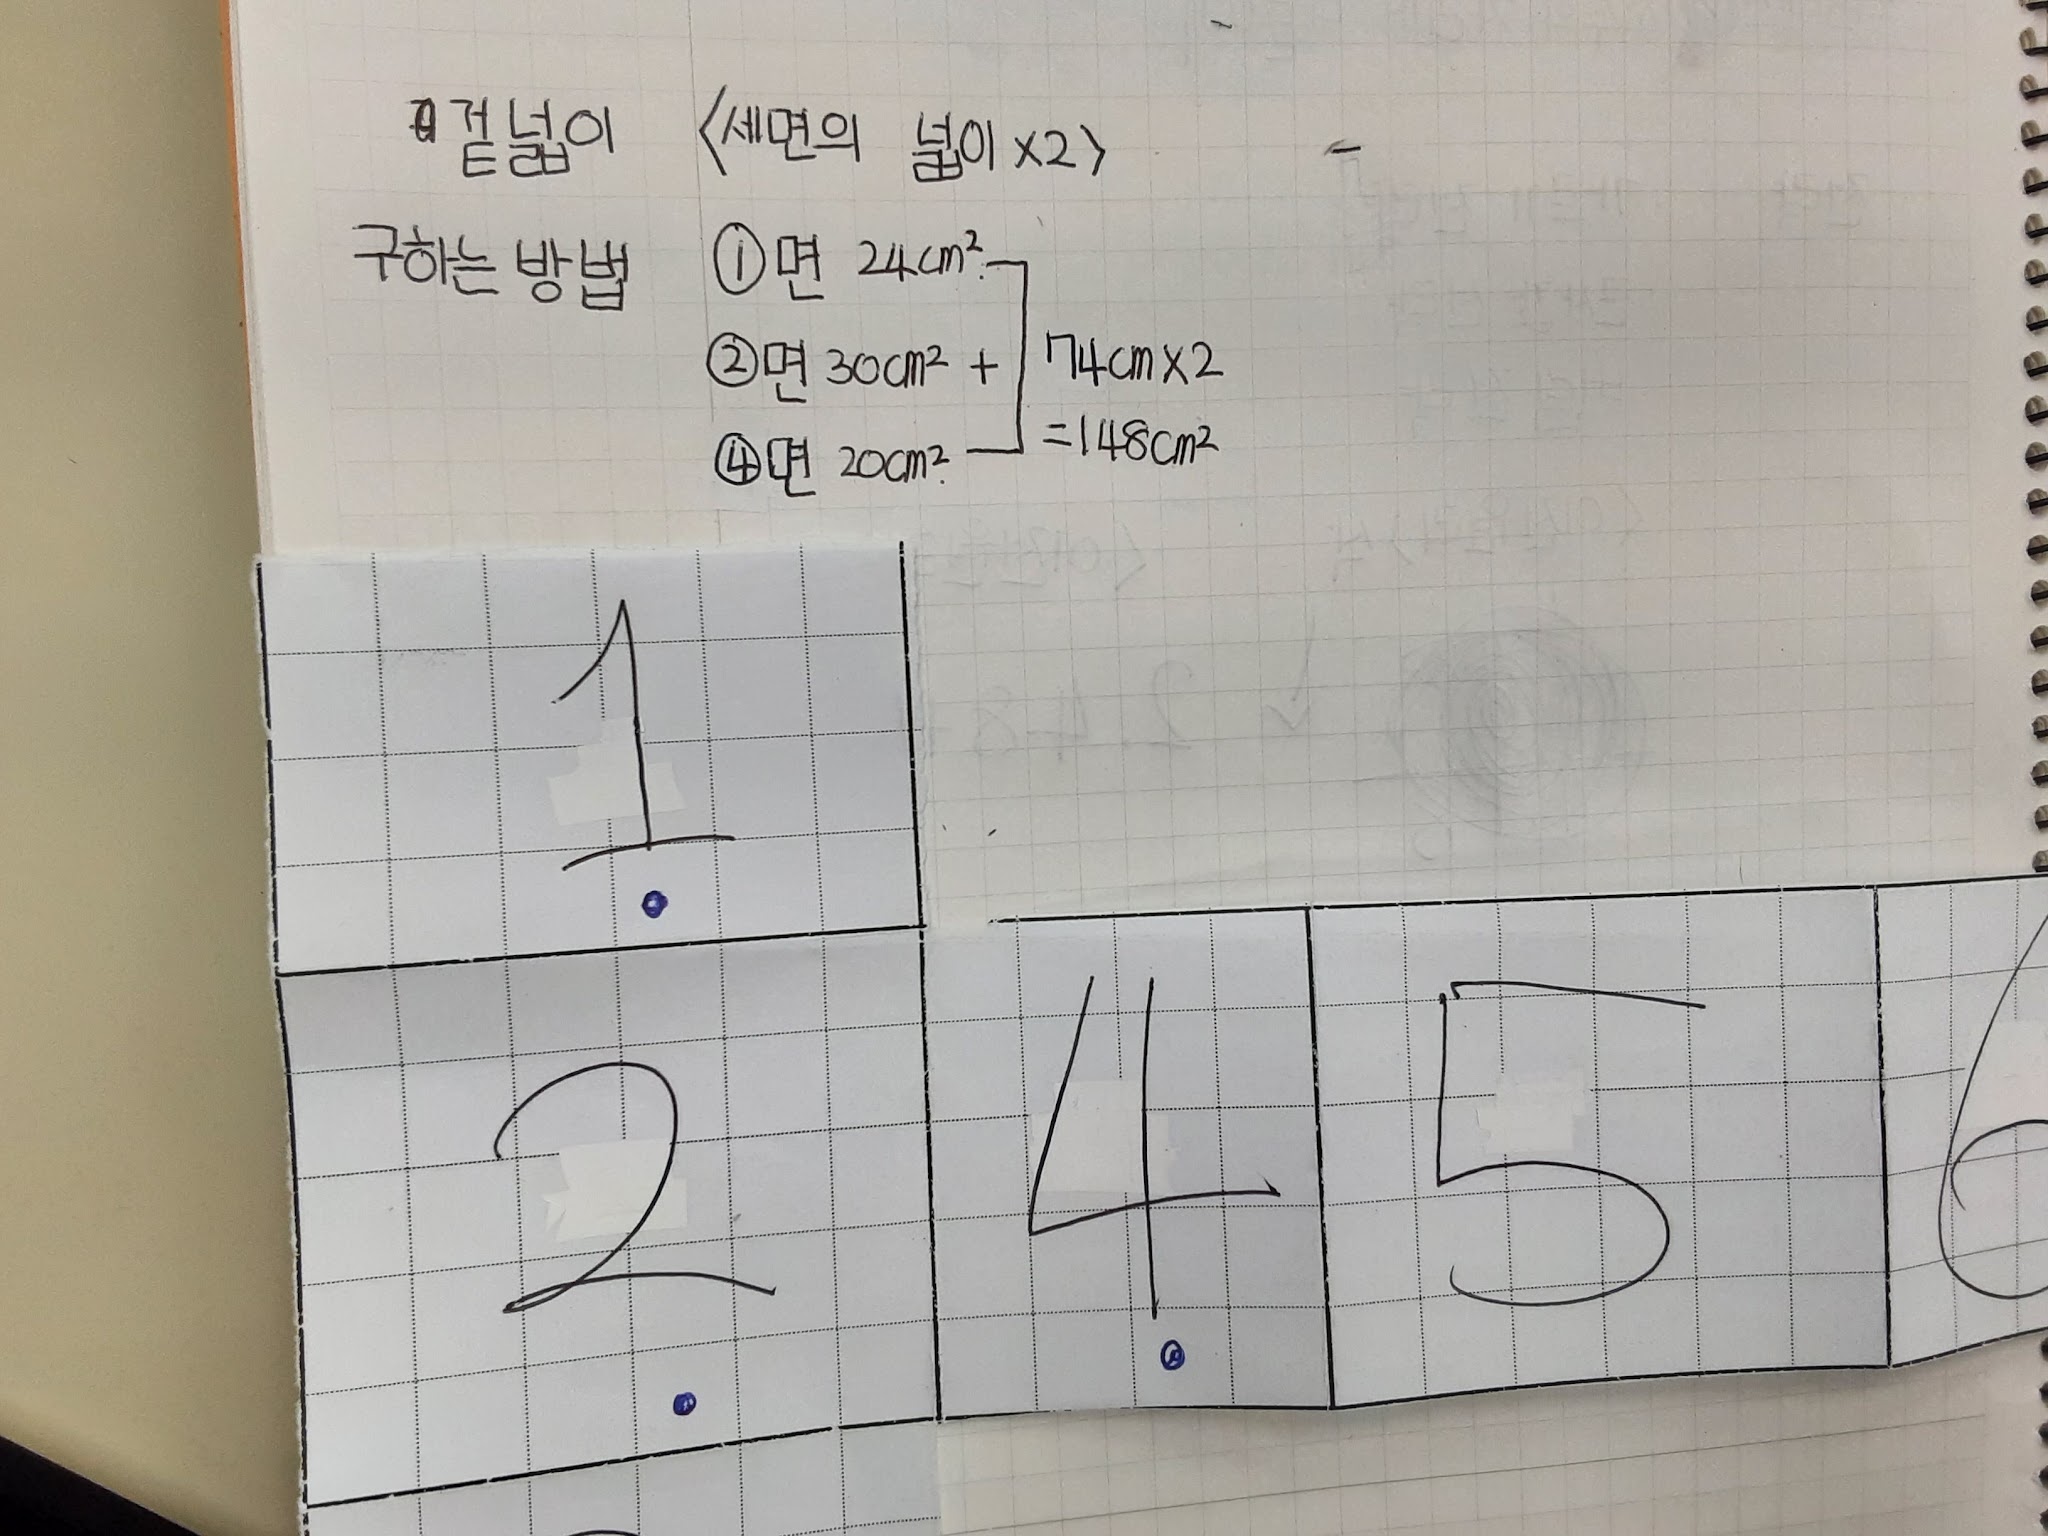 겉넓이 <세면의 넓이×2>
구하는 방법 ①면 24cm²
②면 30cm² + 74cm×2
=148cm²
④면 20cm²
1
2 4 5 6